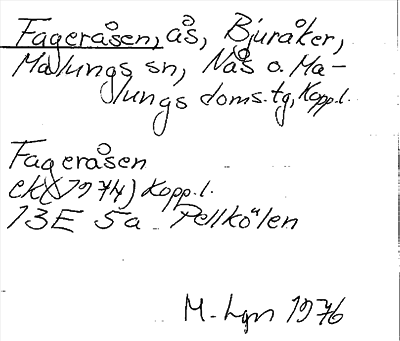 Fageråsen, ås, Bjuråker,
Malungs sn, Nås o. Ma-
lungs doms.tg, Kopp.l.
Fageråsen
ek (1974) Kopp.l.
13E 5a Pellkölen
M. Lgn 1976